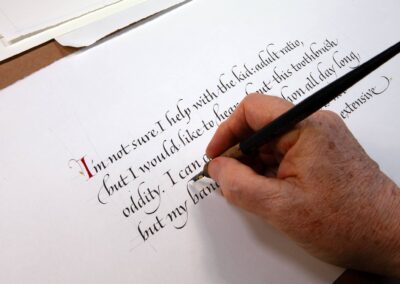 I'm not sure I help with the kid:adult ratio,
but I would like to hear about this toothbrush
oddity. I can all day long,
but my extensive